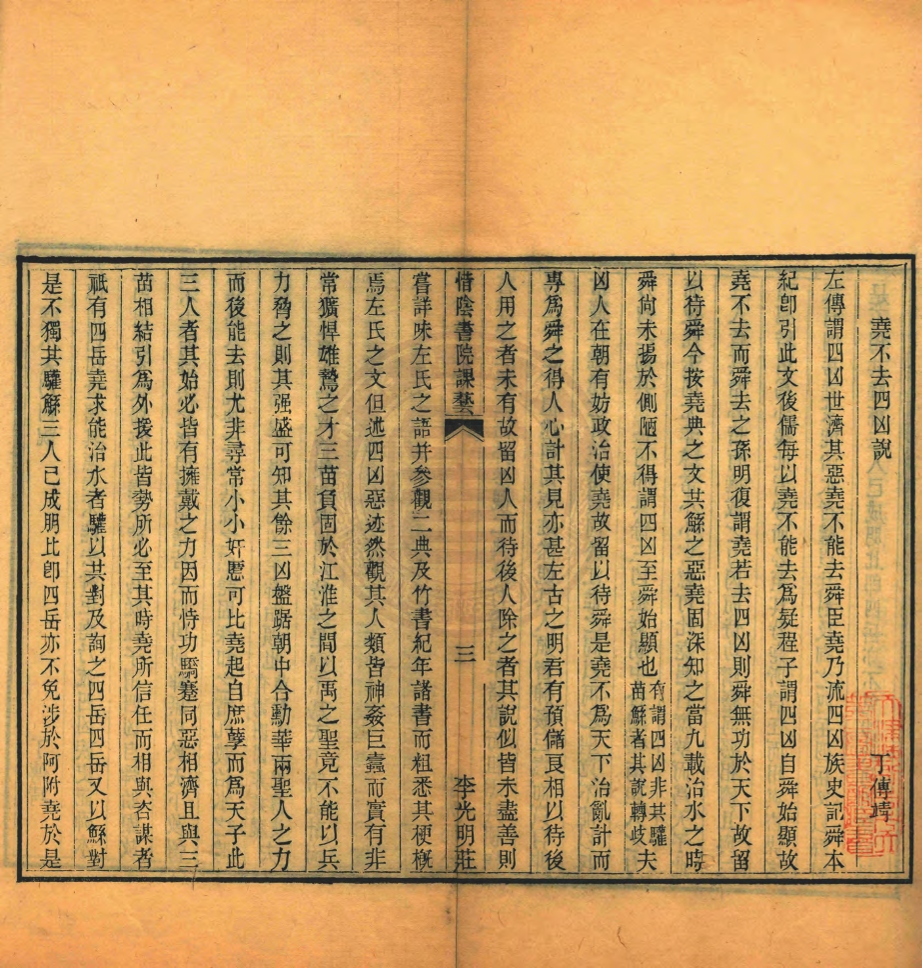 堯不去四凶說
丁傳靖
左傳謂四凶世濟其惡堯不能去舜臣堯乃流四凶族史記舜本
紀卽引此文後儒每以堯不能去爲疑程子謂四凶自舜始顯故
堯不去而舜去之孫明復謂堯若去四凶則舜無功於天下故留
以待舜今按堯典之文共鯀之惡堯固深知之當九載治水之時
舜尚未揚於側陋不得謂四凶至舜始顯也有謂四凶非其驩苗鯀者其說轉歧夫
凶人在朝有妨政治使堯故留以待舜是堯不爲天下治亂計而
專爲舜之得人心計其見亦甚左古之明君有預儲良相以待後
人用之者未有故留凶人而待後人除之者其說似皆未盡善則
惜陰書院課藝 三 李光明莊
嘗詳味左氏之語幷參觀二典及竹書紀年諸書而粗悉其梗槪
焉左氏之文但述四凶惡迹然觀其人類皆神姦巨蠹而實有非
常獷悍雄鷙之才三苗負固於江淮之間以禹之聖竟不能以兵
力脅之則其强盛可知其餘三凶盤踞朝中合勳華兩聖人之力
而後能去則尤非尋常小小奸慝可比堯起自庶孽而爲天子此
三人者其始必皆有擁戴之力因而恃功驕蹇同惡相濟且與三
苗相結引爲外援此皆勢所必至其時堯所信任而相與咨謀者
祇有四岳堯求能治水者驩以共對及詢之四岳四岳又以鯀對
是不獨共驩鯀三人已成朋比卽四岳亦不免涉於阿附堯於是